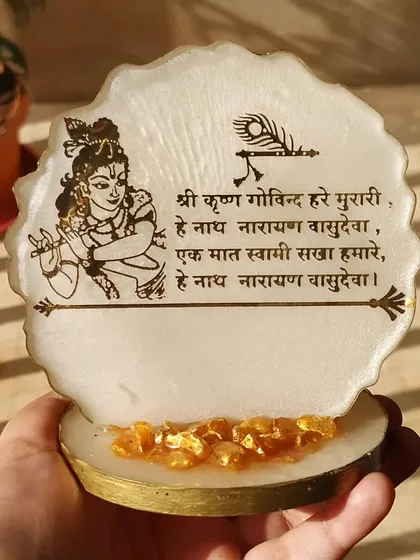 श्री कृष्ण गोविन्द हरे मुरारी,
हे नाथ नारायण वासुदेवा,
एक मात स्वामी सखा हमारे,
हे नाथ नारायण वासुदेवा।